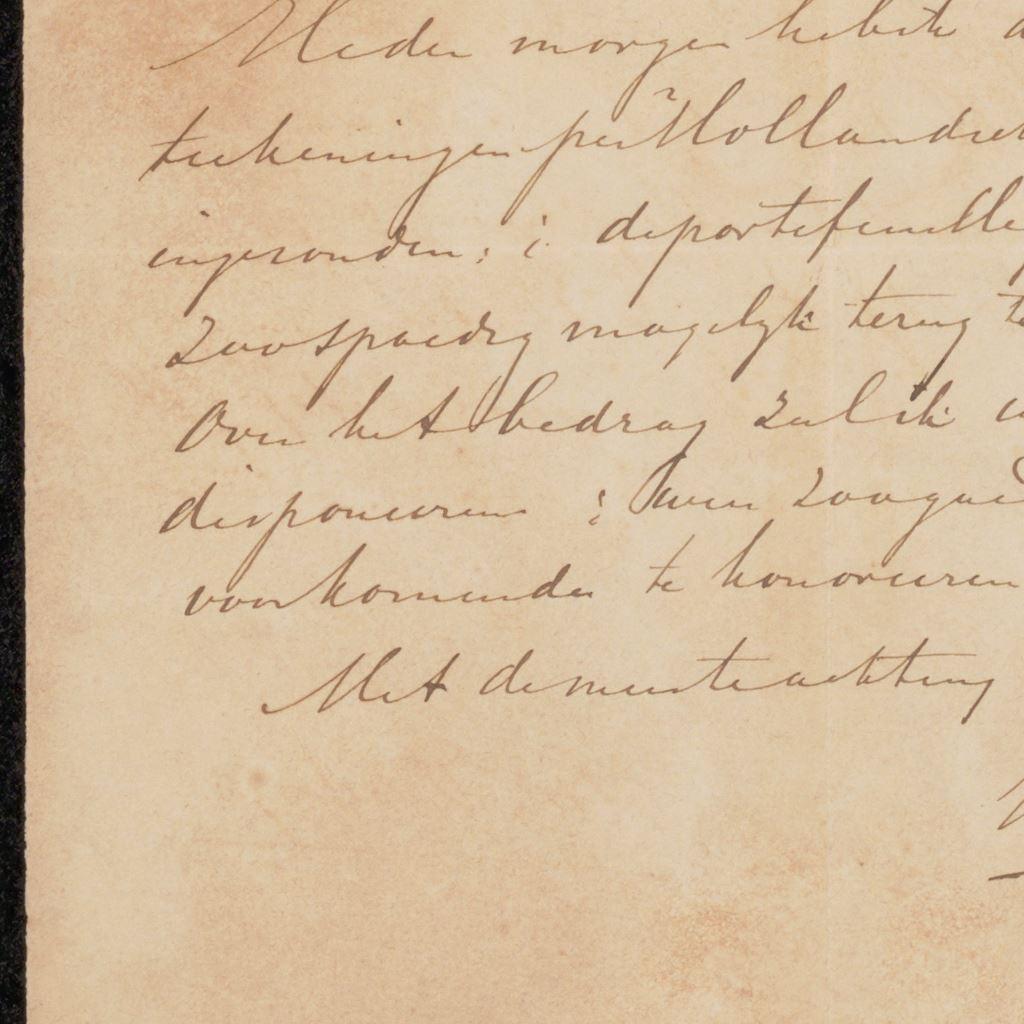 Heden morgen heb ik
teekeningen per Hollandsch
ingezonden; : de portefeuille
zoo spoedig mogelijk terug te
Over het bedrag zal ik
disponeeren ; : zoo goed
voorkomende te honoreeren
Met de meeste achting